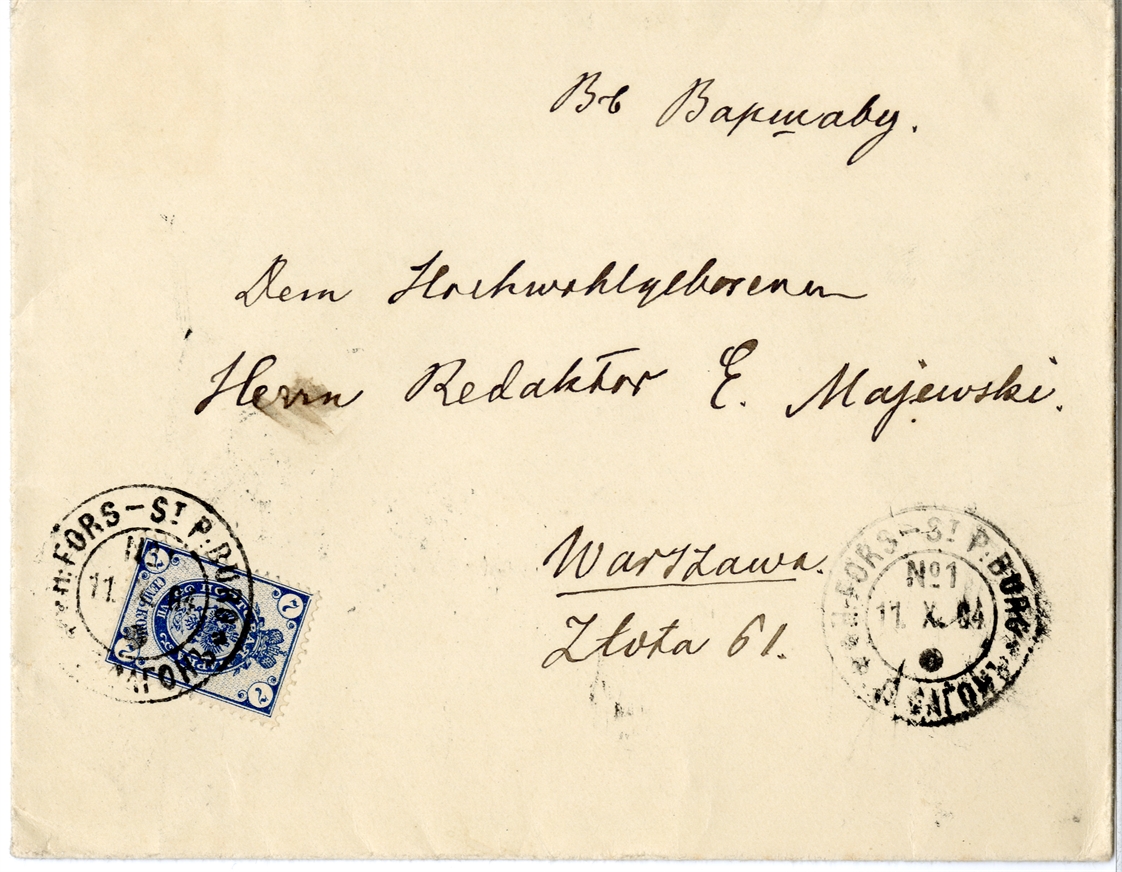 Въ Варшаву.
Dem Hochwohlgeborenen
Herrn Redaktor E. Majewski.
Warszawa.
Złota 61.
H:FORS–ST P.BU
11.
7
7
7
H:FORS–ST P:BURG
No 1
11. X. 04